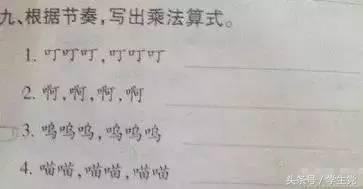 九、根据节奏,写出乘法算式。
1. 叮叮叮,叮叮叮
2. 啊,啊,啊,啊
3. 呜呜呜,呜呜呜
4. 喵喵,喵喵,喵喵
头条号/学生党